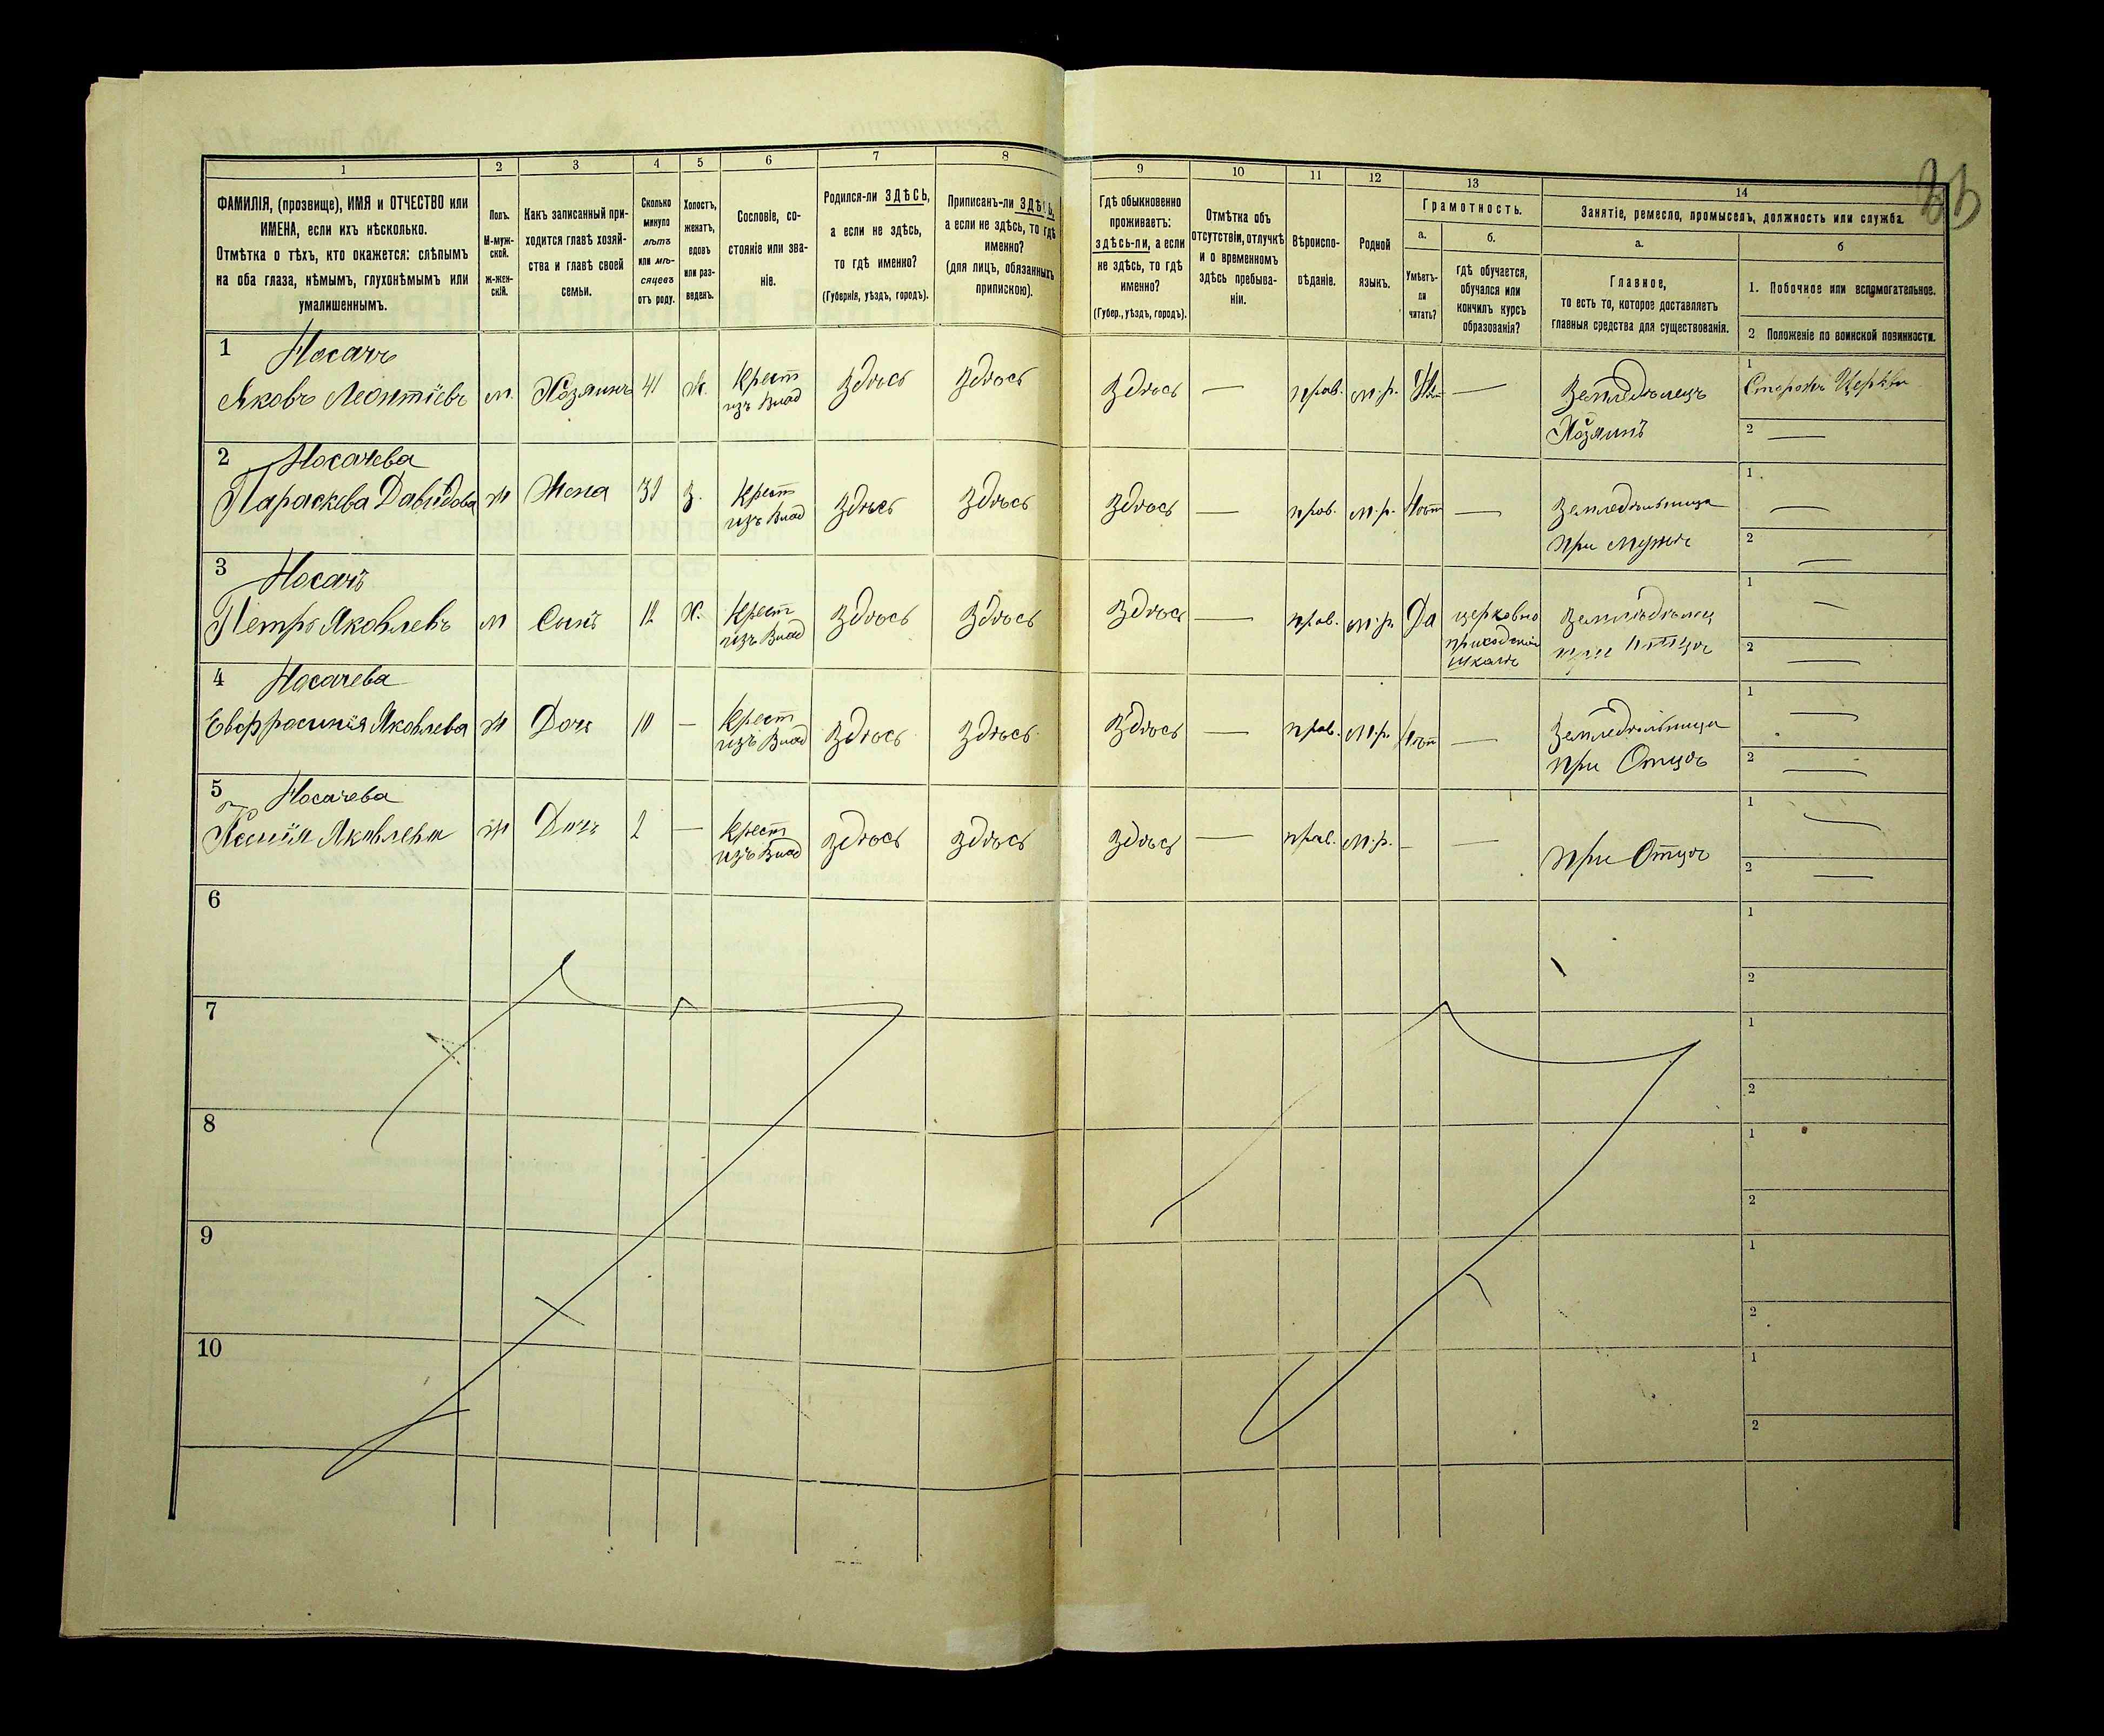 26
1
2
3
4
5
6
7
8
9
10
11
12
13
14
ФАМИЛІЯ, (прозвище), ИМЯ и ОТЧЕСТВО или
ИМЕНА, если ихъ нѣсколько.
Отмѣтка о тѣхъ, кто окажется: слѣпымъ
на оба глаза, нѣмымъ, глухонѣмымъ или
умалишеннымъ.
Полъ.
М-муж-
ской.
Ж-жен-
скій.
Какъ записанный при-
ходится главѣ хозяй-
ства и главѣ своей
семьи.
Сколько
минуло
лѣтъ
или мѣ-
сяцевъ
отъ роду.
Холостъ,
женатъ,
вдовъ
или раз-
веденъ.
Сословіе, со-
стояніе или зва-
ніе.
Родился-ли ЗДѢСЬ,
а если не здѣсь,
то гдѣ именно?
(Губернія, уѣздъ, городъ).
Приписанъ-ли ЗДѢСЬ,
а если не здѣсь, то гдѣ
именно?
(для лицъ, обязанныхъ
припискою).
Гдѣ обыкновенно
проживаетъ:
здѣсь-ли, а если
не здѣсь, то гдѣ
именно?
(Губер., уѣздъ, городъ).
Отмѣтка объ
отсутствіи, отлучкѣ
и о временномъ
здѣсь пребыва-
ніи.
Вѣроиспо-
вѣданіе.
Родной
языкъ.
Грамотность.
а.
Умѣетъ-
ли
читать?
б.
гдѣ обучается,
обучался или
кончилъ курсъ
образованія?
Занятіе, ремесло, промыселъ, должность или служба.
а.
Главное,
то есть то, которое доставляетъ
главныя средства для существованія.
б
1. Побочное или вспомогательное.
2 Положеніе по воинской повинности.
1 Носачъ
Яковъ Леонтіевъ м. Хозяинъ 41 Ж. Крест изъ Влад Здѣсь Здѣсь Здѣсь — прав. м.р. — Земледѣлецъ Хозяинъ
1 Сторожъ Церкви
2 —
2 Носачева
Параскева Давидова ж Жена 39 З. Крест изъ Влад Здѣсь Здѣсь Здѣсь — прав. м.р. Нѣт — Земледѣльница при мужѣ
1 —
2 —
3 Носачъ
Петръ Яковлевъ м Сынъ 12 Х. Крест изъ Влад Здѣсь Здѣсь Здѣсь — прав. м.р. Да церковно приходской школѣ Земледѣлец при Отцѣ
1 —
2 —
4 Носачева
Евфрасинія Яковлева ж Дочь 10 — Крест изъ Влад Здѣсь Здѣсь Здѣсь — прав. м.р. Нѣт — Земледѣльница при Отцѣ
1 —
2 —
5 Носачева
Ксенія Яковлева ж Дочь 2 — Крест изъ Влад Здѣсь Здѣсь Здѣсь — прав. м.р. — — при Отцѣ
1 —
2 —
6
1
2
7
1
2
8
1
2
9
1
2
10
1
2